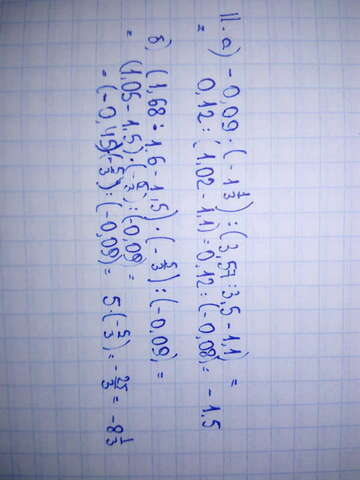 11. а) - 0,09 · (- 1 1/3) : (3,57 : 3,5 - 1,1) =
= 0,12 : (1,02 - 1,1) = 0,12 : (- 0,08) = - 1,5
б) (1,68 : 1,6 - 1,5) · (- 5/3) : (- 0,09) =
= (1,05 - 1,5) · (- 5/3) : (- 0,09) =
= (- 0,45) · (- 5/3) : (- 0,09) = 5 · (- 5/3) = - 25/3 = - 8 1/3